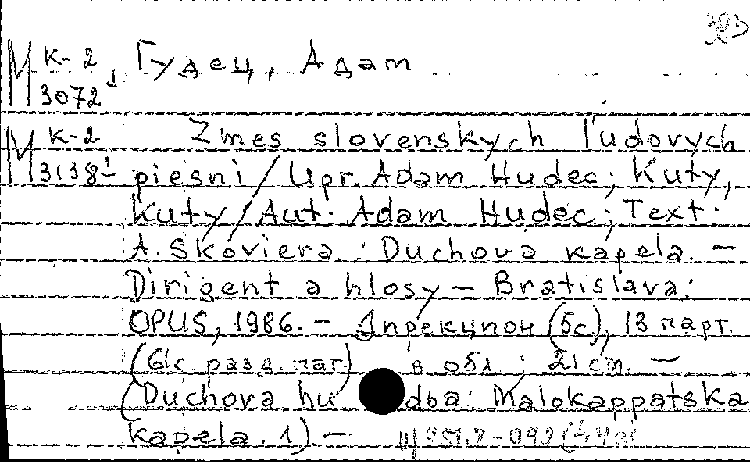 383
М К-2 Гудец, Адам
3072
М К-2 Zmes slovenskych ľudovych
3138 piesni / Upr. Adam Hudec; Kuty,
Kuty / Aut. Adam Hudec; Text.
A. Skoviera: Duchova kapela. –
Dirigent a hlosy – Bratislava:
OPUS, 1986. – Дирекцион (5с), 13 парт.
(61с разд. паг) в обл; 21 cm. –
(Duchova hu dba: Malokappatska
kapela. 1) –